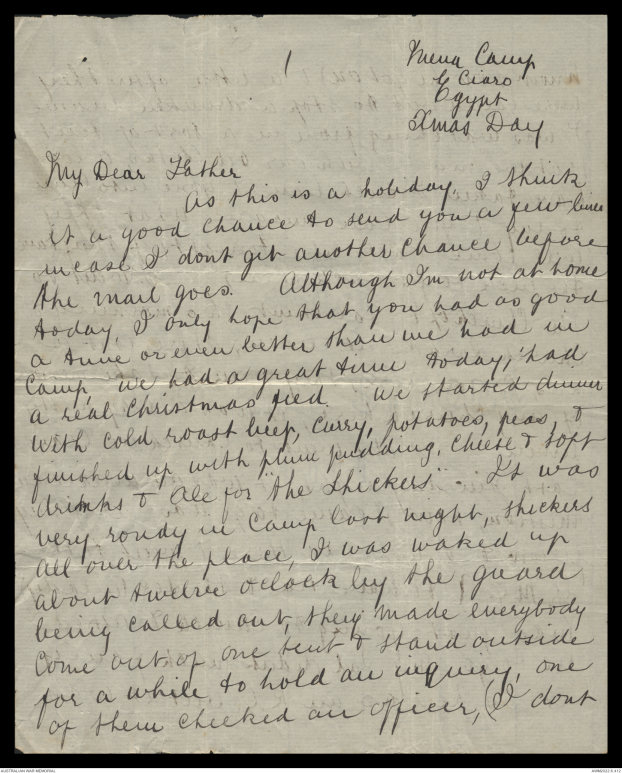 1
Mena Camp
Ciaro
Egypt
Xmas Day
My Dear Father
As this is a holiday, I think
it a good chance to send you a few lines
incase I dont git another chance before
the mail goes. Although I'm not at home
today, I only hope that you had as good
a time or even better than we had in
Camp, we had a great time today, had
a real Christmas feed. We started dinner
with cold roast beef, curry, potatoes, peas, &
finished up with plum pudding, cheese & soft
drinks & ale for "the Shickers". It was
very rowdy in Camp last night, shickers
all over the place, I was waked up
about twelve o'clock by the guard
being called out, they made everybody
come out of one tent & stand outside
for a while to hold an inquiry, one
of them cheeked an officer, (I dont
AUSTRALIAN WAR MEMORIAL